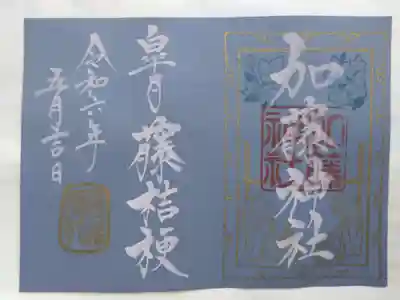 加藤神社
皐月 藤 桔梗
令和六年
五月吉日